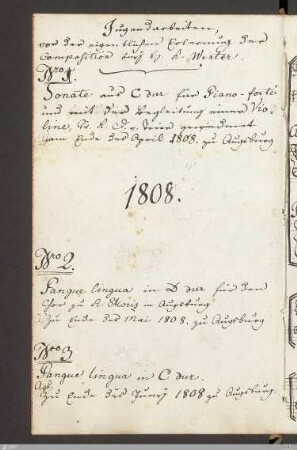 Jugendarbeiten,
vor der eigentlichen Erlernung der
Composition bey H. K. Winter.
Nro 1.
Sonate aus C dur für Piano-forte
und mit der Begleitung einer Vio-
line, gewidmet
am Ende des April 1808. zu Augsburg.
1808.
Nro 2.
Pangue lingua in D dur für den
Chor zu St. Moriz in Augsburg
Zu Ende des Mai 1808. zu Augsburg
Nro 3
Pangue lingua in C dur.
Zu Ende des Junÿ 1808 zu Augsburg.